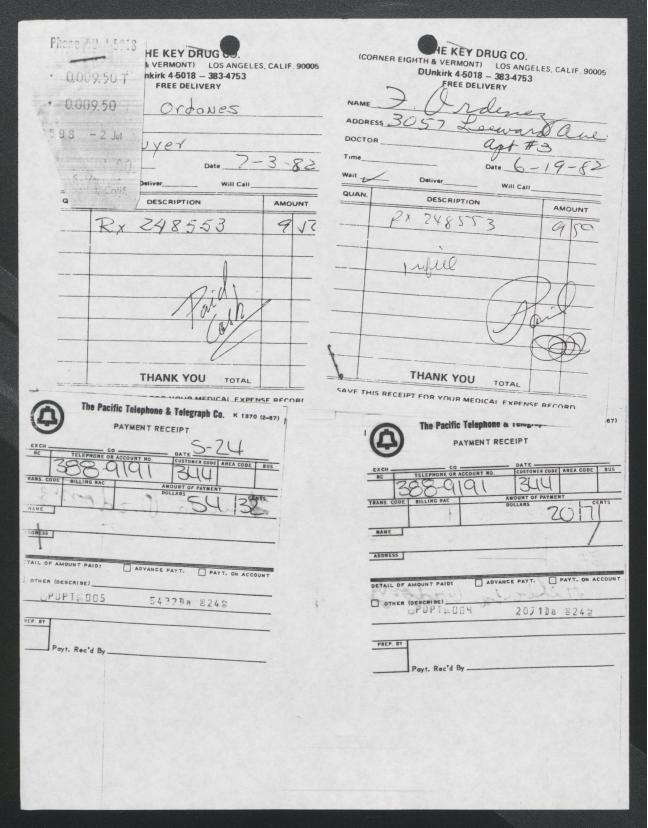 Phone
0,009.50 T
0,009.50
HE KEY DRUG CO.
& VERMONT) LOS ANGELES, CALIF. 90005
DUnkirk 4-5018 — 383-4753
FREE DELIVERY
Ordones
Date 7-3-82
Deliver Will Call
DESCRIPTION AMOUNT
Rx 248553 9
Paid
Cash
THANK YOU TOTAL
FOR YOUR MEDICAL EXPENSE RECORD
THE KEY DRUG CO.
(CORNER EIGHTH & VERMONT) LOS ANGELES, CALIF. 90005
DUnkirk 4-5018 — 383-4753
FREE DELIVERY
NAME F. Ordenez
ADDRESS 3057 Leeward Ave.
DOCTOR apt #3
Time Date 6-19-82
Wait Deliver Will Call
QUAN. DESCRIPTION AMOUNT
Rx 248553 9 50
refill
Paid
THANK YOU TOTAL
SAVE THIS RECEIPT FOR YOUR MEDICAL EXPENSE RECORD
The Pacific Telephone & Telegraph Co. K 1370 (2-67)
PAYMENT RECEIPT
5-24
EXCH CO DATE
RC TELEPHONE OR ACCOUNT NO. CUSTOMER CODE AREA CODE BUS
388-9191 344
TRANS. CODE BILLING RAC AMOUNT OF PAYMENT
DOLLARS CENTS
54 32
NAME
ADDRESS
DETAIL OF AMOUNT PAID: ADVANCE PAYT. PAYT. ON ACCOUNT
OTHER (DESCRIBE)
PDPT 005 5432Da 8248
PREP. BY
Payt. Rec'd By
The Pacific Telephone & 67)
PAYMENT RECEIPT
EXCH CO DATE
RC TELEPHONE OR ACCOUNT NO. CUSTOMER CODE AREA CODE BUS
388-9191 344
TRANS. CODE BILLING RAC AMOUNT OF PAYMENT
DOLLARS CENTS
20 71
NAME
ADDRESS
DETAIL OF AMOUNT PAID: ADVANCE PAYT. PAYT. ON ACCOUNT
OTHER (DESCRIBE)
PDPT 004 2071Da 8248
PREP. BY
Payt. Rec'd By